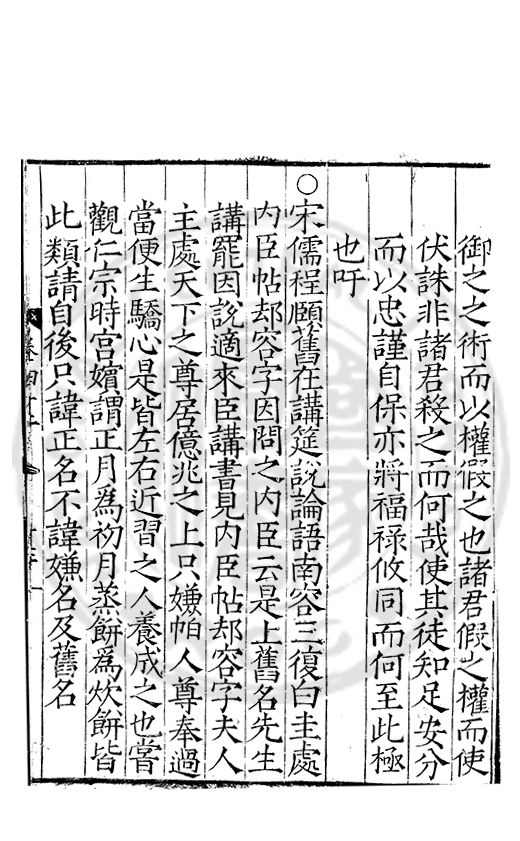 御之之術而以權假之也諸君假之權而使
伏誅非諸君殺之而何哉使其徒知足安分
而以忠謹自保亦將福祿攸同而何至此極
也吁
○宋儒程頤舊在講筵說論語南容三復白圭處
内臣帖却容字因問之内臣云是上舊名先生
講罷因說適來臣講書見内臣帖却容字夫人
主處天下之尊居億兆之上只嫌怕人尊奉過
當便生驕心是皆左右近習之人養成之也嘗
觀仁宗時宫嬪謂正月為初月蒸餅為炊餅皆
此類請自後只諱正名不諱嫌名及舊名